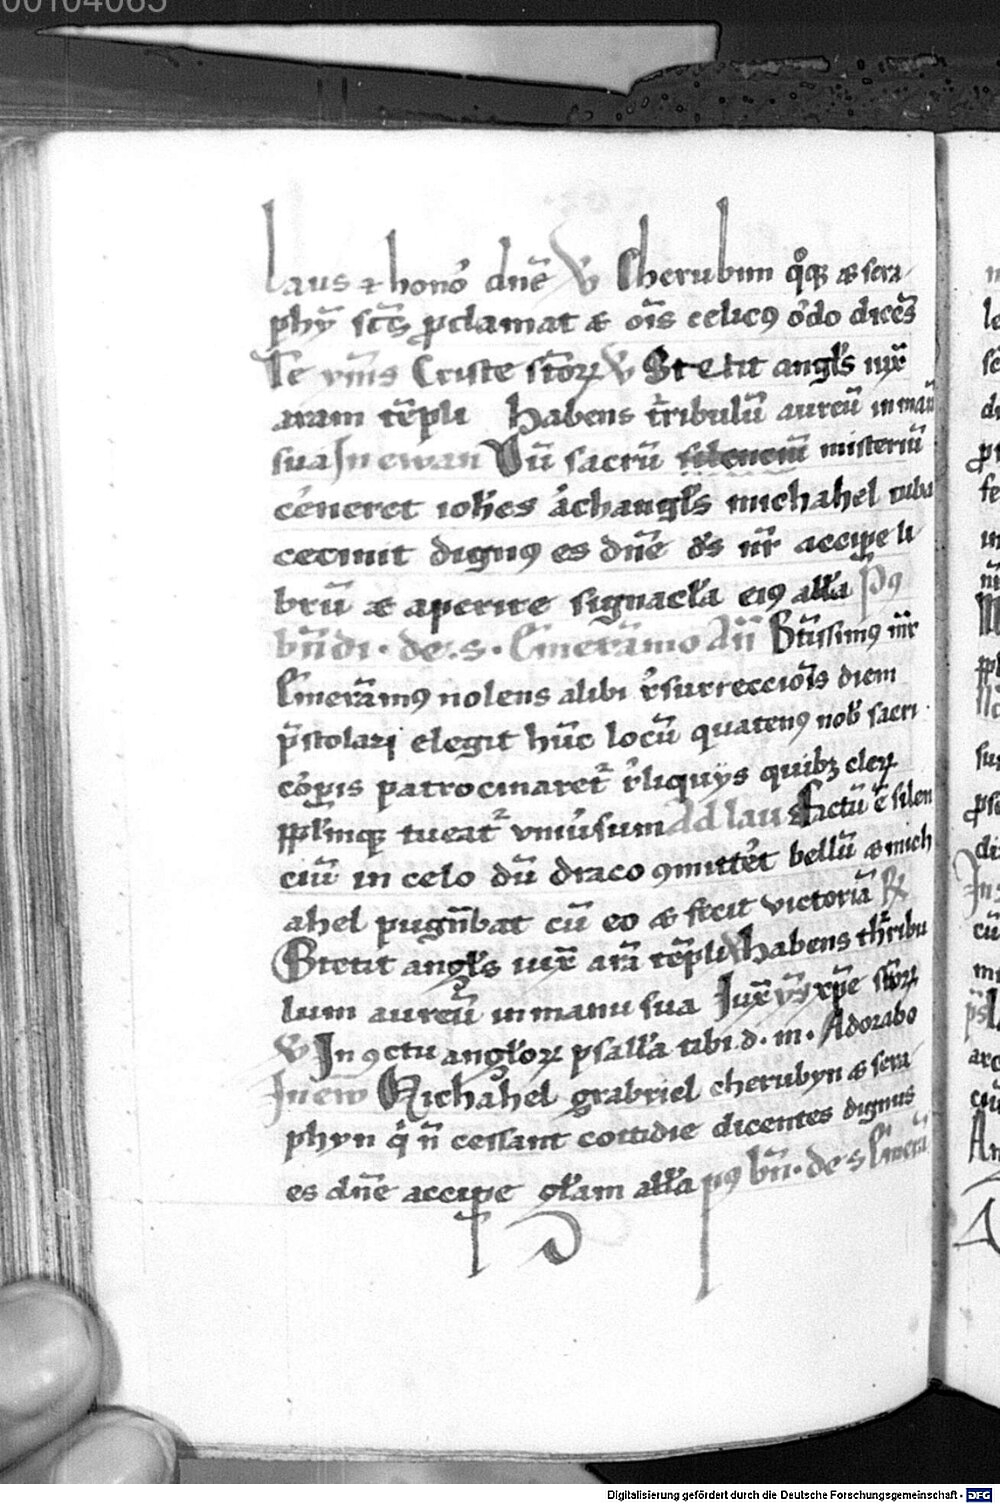 00104065
laus ⁊ honoꝛ dn̄e V Cherubim qͦqꝫ ⁊ sera
phȳ sc̄s ꝓclamat ⁊ oīs celicꝯ oꝛdo dicēs
Te ym̄s Criste sc̄oꝝ V Stetit angl̄s iux̄
aram tēpli habens t̄ribulū aureū in manū
sua In ewan Dū sacrū silenciū misteriū
cēneret ioh̄es aꝛchangl̄s michahel tuba
cecinit dignꝯ es dn̄e ds̄ nr̄ accipe li
brū ⁊ aperire signacl̄a eiꝯ all̄a Pꝯ
bn̄di · de · s · Emerāmo Añ Bt̄issimꝯ nr̄
Emerāmꝯ nolens alibi r̄surreccioīs diem
p̄stolari elegit hūc locū quatenꝯ nob̄ sacri
coꝛꝑis patrocinaret᷑ r̄liquijs quibꝫ cleꝝ
ppl̄mqꝫ tueat᷑ vniūsum Ad lau Factū ē silen
ciū in celo dū draco ꝯmittēt bellū ⁊ mich
ahel pugn̄bat cū eo ⁊ fecit victoriā ℟
Stetit angl̄s iux̄ arā tēpli V habens th̄ribu
lum aureū in manu sua Iux̄ xp̄e sc̄oꝝ
V In ꝯctu angl̄oꝝ psall̄a tibi d · m · Adorabo
In ew̄ Michahel grabriel cherubyn ⁊ sera
phyn q̄ n̄ cessant cottidie dicentes dignus
es dn̄e accipe gl̄am all̄a pꝯ bn̄ · de s Emerā
Digitalisierung gefördert durch die Deutsche Forschungsgemeinschaft - DFG